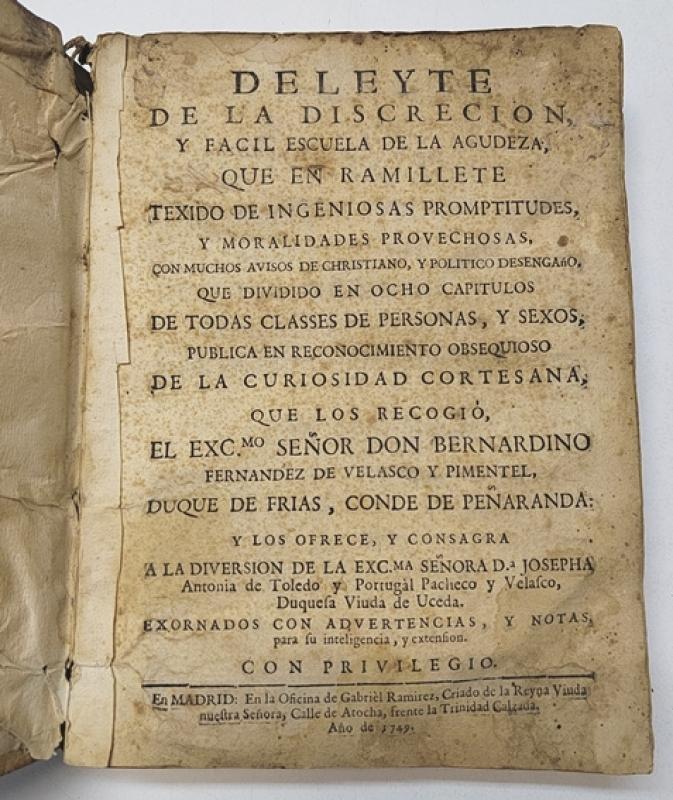 DELEYTE
DE LA DISCRECION,
Y FACIL ESCUELA DE LA AGUDEZA,
QUE EN RAMILLETE
TEXIDO DE INGENIOSAS PROMPTITUDES,
Y MORALIDADES PROVECHOSAS,
CON MUCHOS AVISOS DE CHRISTIANO, Y POLITICO DESENGAñO,
QUE DIVIDIDO EN OCHO CAPITULOS
DE TODAS CLASSES DE PERSONAS, Y SEXOS,
PUBLICA EN RECONOCIMIENTO OBSEQUIOSO
DE LA CURIOSIDAD CORTESANA,
QUE LOS RECOGIÒ,
EL EXC.MO SEÑOR DON BERNARDINO
FERNANDEZ DE VELASCO Y PIMENTEL,
DUQUE DE FRIAS, CONDE DE PEÑARANDA:
Y LOS OFRECE, Y CONSAGRA
A LA DIVERSION DE LA EXC.MA SEÑORA D.a JOSEPHA
Antonia de Toledo y Portugàl Pacheco y Velasco,
Duquesa Viuda de Uceda.
EXORNADOS CON ADVERTENCIAS, Y NOTAS,
para su inteligencia, y extension.
CON PRIVILEGIO.
En MADRID: En la Oficina de Gabrièl Ramirez, Criado de la Reyna Viuda
nuestra Señora, Calle de Atocha, frente la Trinidad Calzada.
Año de 1749.